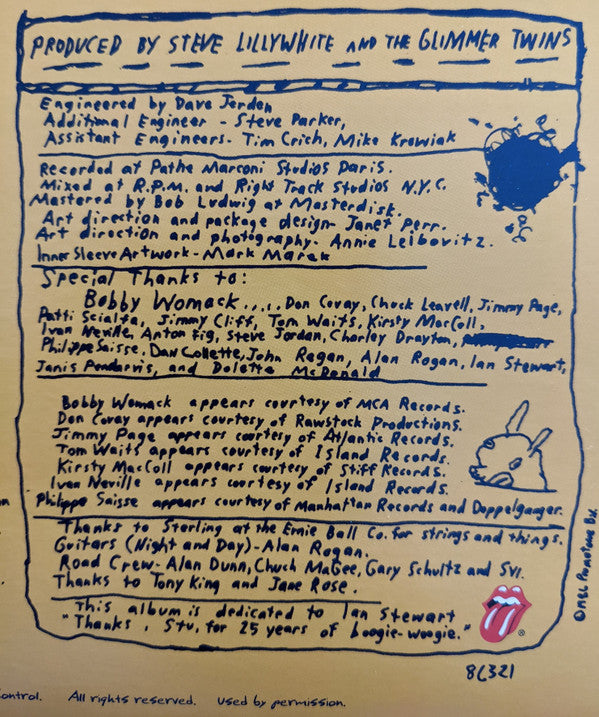 PRODUCED BY STEVE LILLYWHITE AND THE GLIMMER TWINS
Engineered by Dave Jerden
Additional Engineer - Steve Parker,
Assistant Engineers - Tim Crich, Mike Krowiak
Recorded at Pathe Marconi Studios Paris.
Mixed at R.P.M. and Right Track Studios N.Y.C.
Mastered by Bob Ludwig at Masterdisk.
Art direction and package design - Janet Perr.
Art direction and photography - Annie Leibovitz.
Inner Sleeve Artwork - Mark Marek
Special Thanks to:
Bobby Womack...., Don Covay, Chuck Leavell, Jimmy Page,
Patti Scialfa, Jimmy Cliff, Tom Waits, Kirsty MacColl,
Ivan Neville, Anton Fig, Steve Jordan, Charley Drayton,
Philippe Saisse, Dan Collette, John Regan, Alan Rogan, Ian Stewart,
Janis Pendarvis, and Dolette McDonald
Bobby Womack appears courtesy of MCA Records.
Don Covay appears courtesy of Rawstock Productions.
Jimmy Page appears courtesy of Atlantic Records.
Tom Waits appears courtesy of Island Records.
Kirsty MacColl appears courtesy of Stiff Records.
Ivan Neville appears courtesy of Island Records.
Philippe Saisse appears courtesy of Manhattan Records and Doppelganger.
Thanks to Sterling at the Ernie Ball Co. for strings and things.
Guitars (Night and Day) - Alan Rogan.
Road Crew - Alan Dunn, Chuck MaGee, Gary Schultz and Svi.
Thanks to Tony King and Jane Rose.
This album is dedicated to Ian Stewart
"Thanks, Stu, for 25 years of boogie-woogie."
®
86321
All rights reserved. Used by permission.